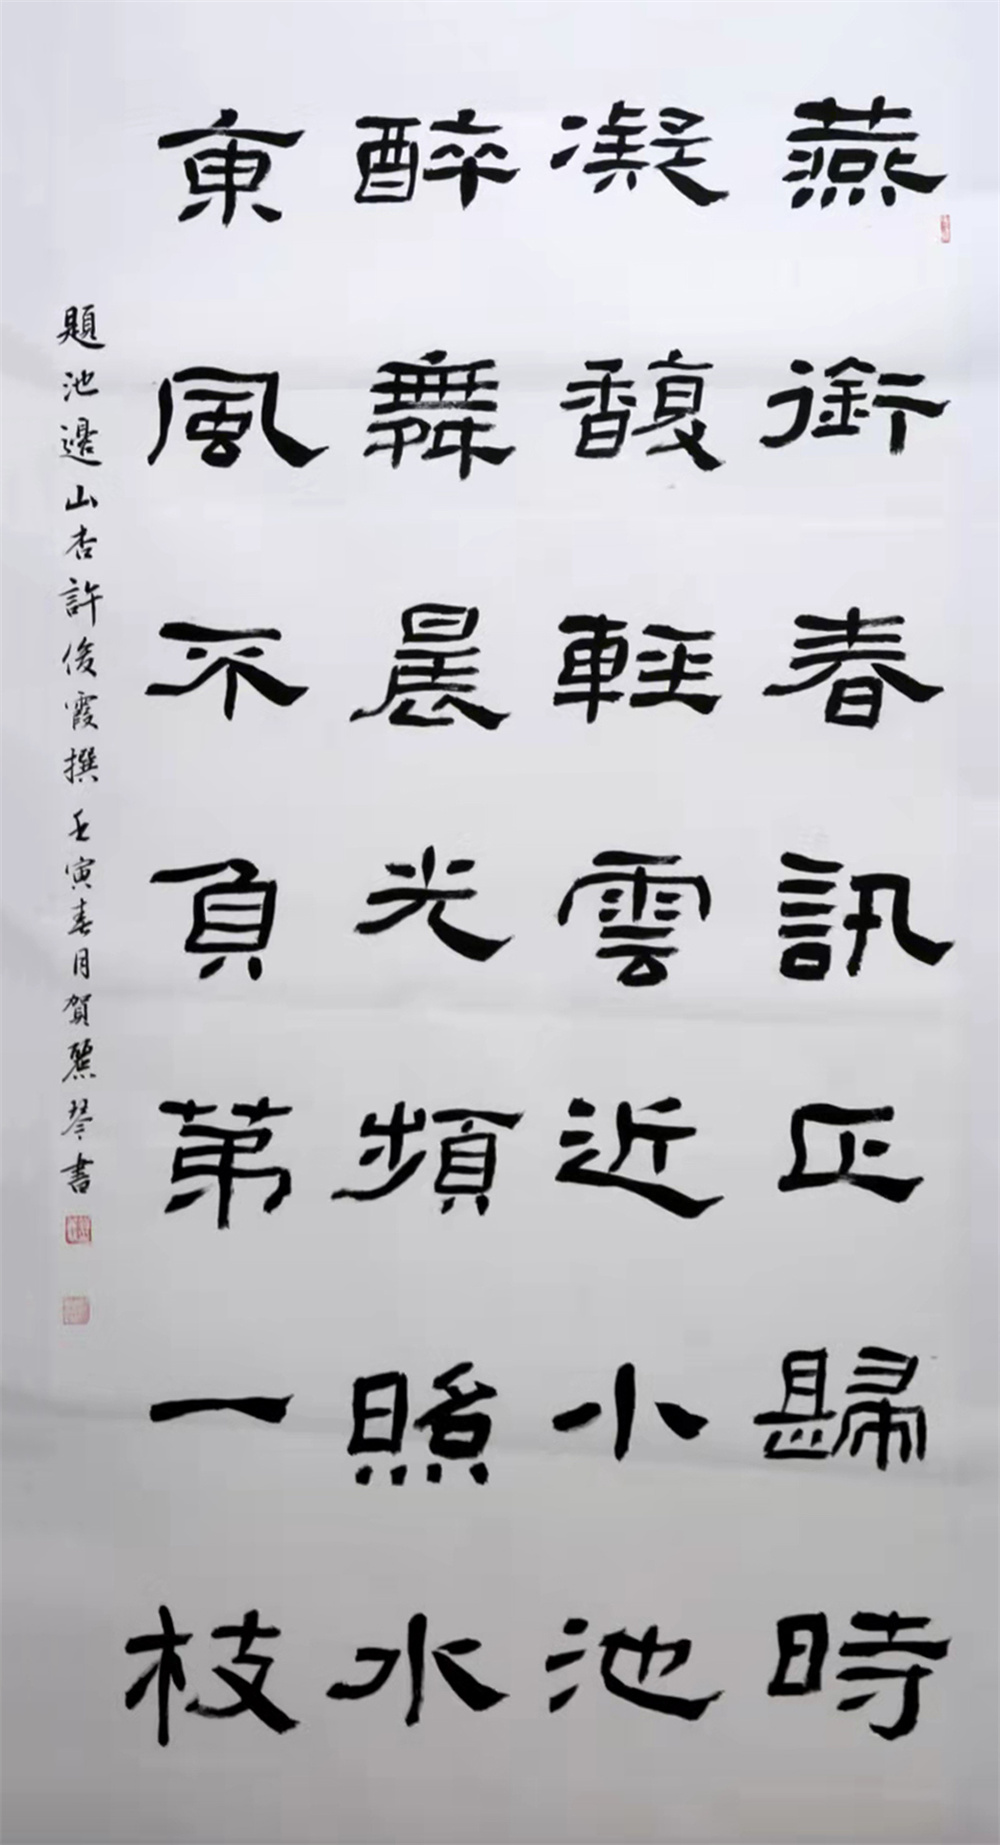 燕銜春訊正歸時
凝馥輕雲近小池
醉舞晨光頻照水
東風不負第一枝
題池邊山杏許俊霞撰壬寅春月賀麗琴書